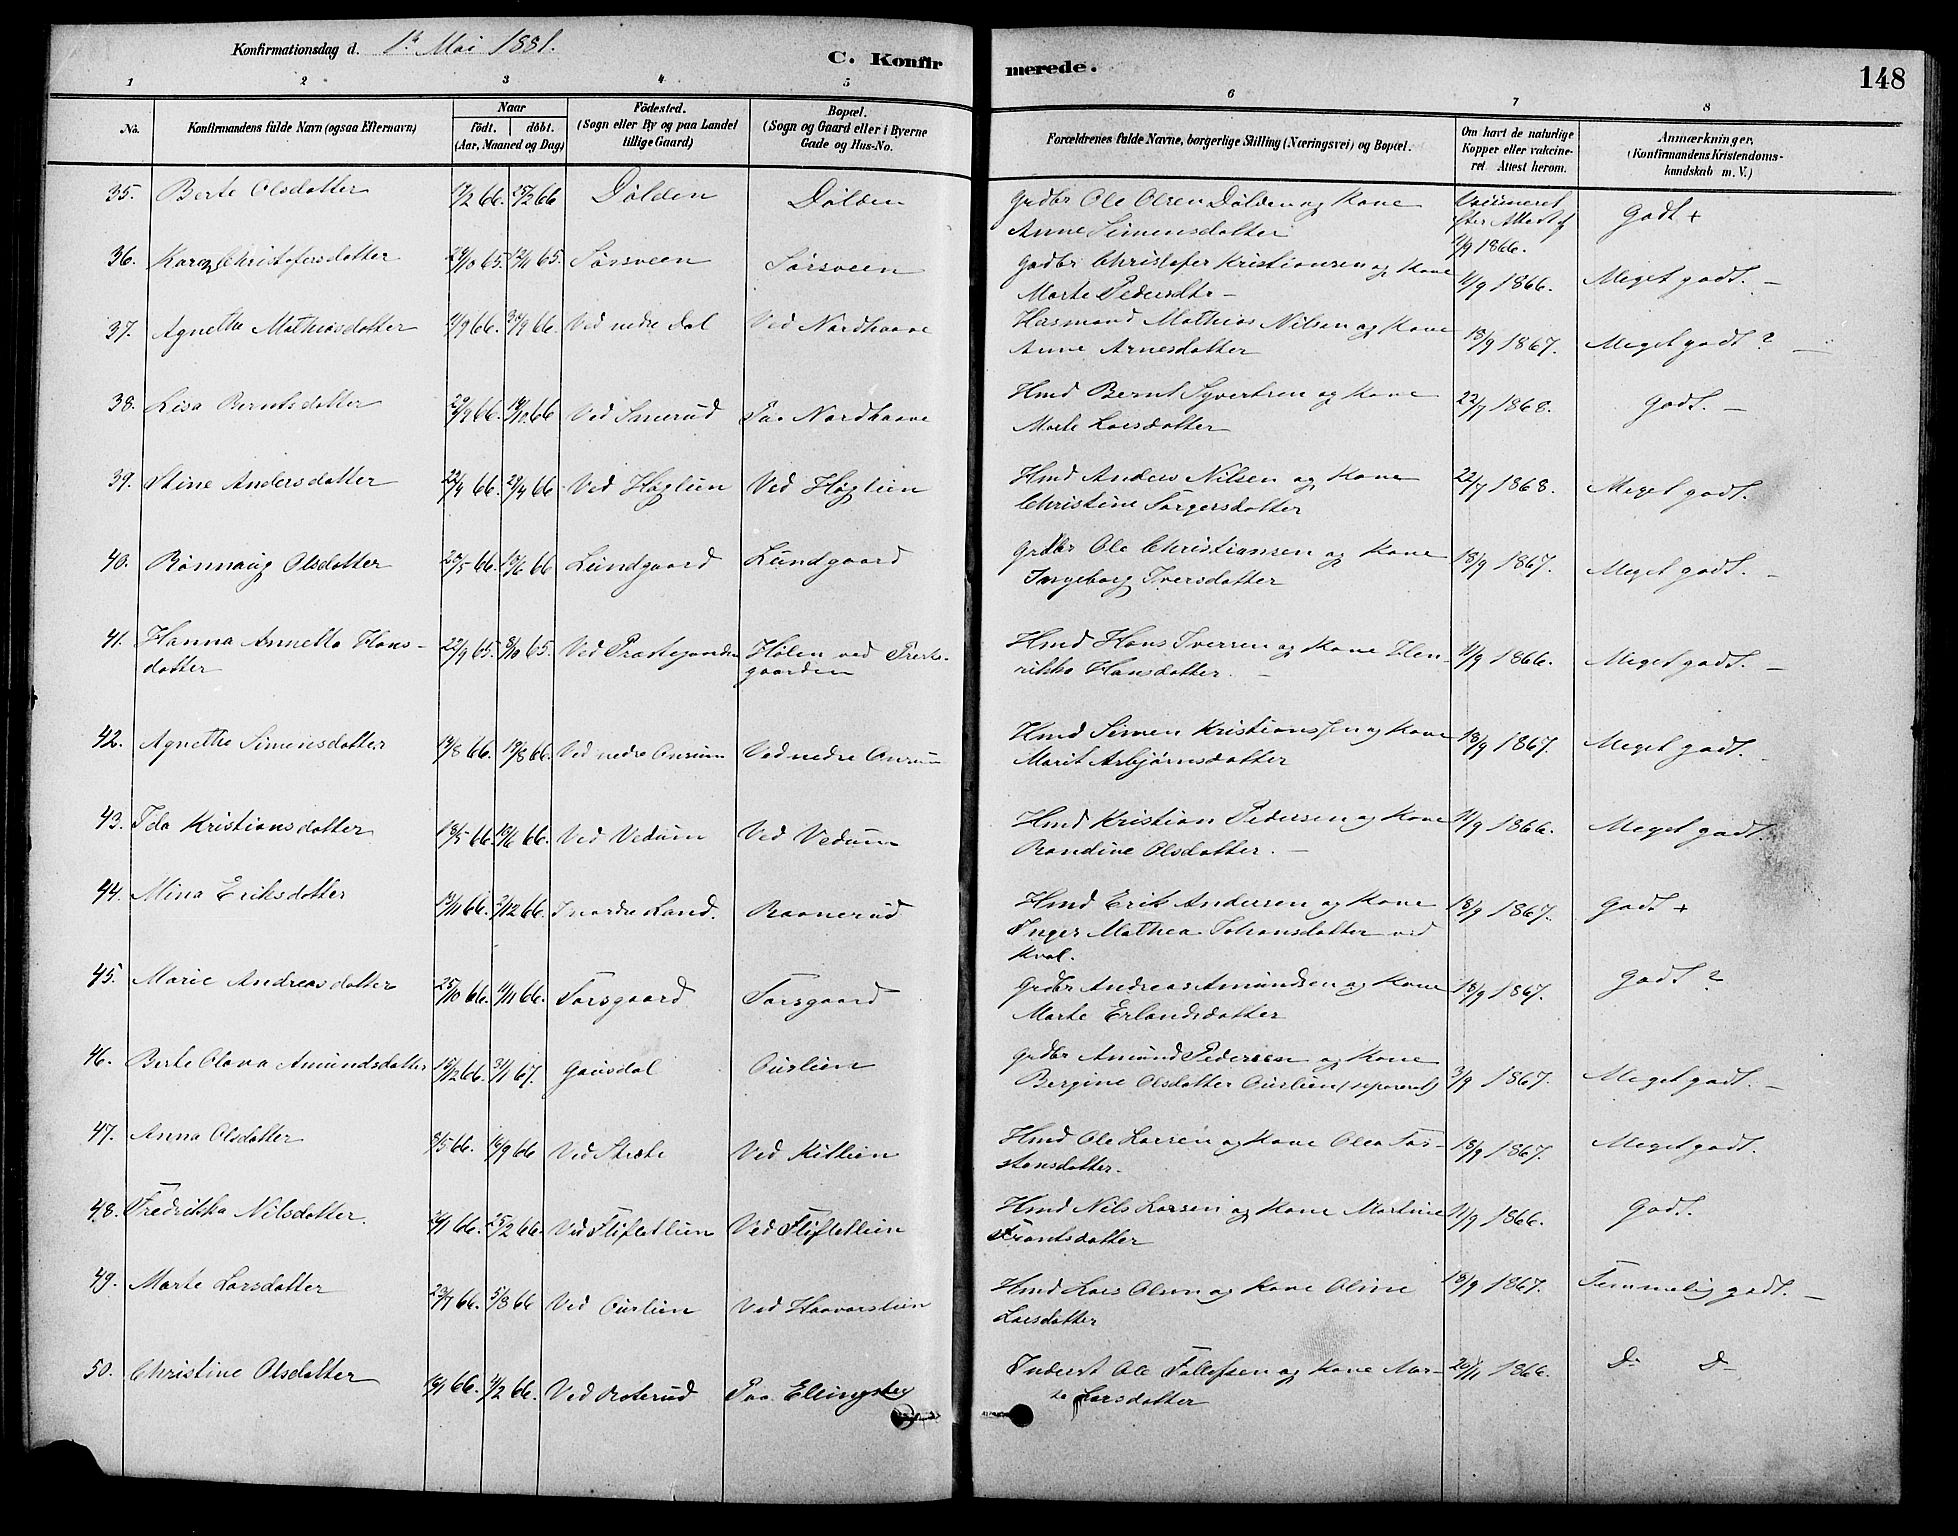 Konfirmationsdag d. 1ste Mai 1881.
C. Konfirmerede.
148
1 2 3 4 5 6 7 8
No.
Konfirmandens fulde Navn (ogsaa Efternavn)
Naar
födt. döbt.
(Aar, Maaned og Dag)
Födested.
(Sogn eller By og paa Landet
tillige Gaard)
Bopæl.
(Sogn og Gaard eller i Byerne
Gade og Hus-No.
Forældrenes fulde Navne, borgerlige Stilling (Næringsvei) og Bopæl.
Om havt de naturlige
Kopper eller vakcine-
ret Attest herom.
Anmærkninger,
(Konfirmandens Kristendoms-
kundskab m. V.)
35. Berte Olsdatter 17/2 66. 25/2 66 Dølden Dølden Grdbr Ole Olsen Dølden og Kone
Anne Simensdatter
Vaccineret
efter Attest af
11/9 1866.
Godt +
36. Karen Christofersdatter 29/10 65. 12/11 65. Sørsveen Sørsveen Gadbr Christofer Kristiansen og Kone
Marte Pedersdtr -
11/9 1866. Meget godt. -
37. Agnethe Mathiasdatter 11/9 66. 30/9 66. Ved nedre Dal Ved Nordhaave Husmand Mathias Nilsen og Kone
Anne Arnesdatter
18/9 1867. Meget godt ? -
38. Lisa Berntsdatter 29/9 66. 14/10 66 Ved Smerud Paa Nordhaave Hmd Bernt Syvertsen og Kone
Marte Larsdatter
22/7 1868. Godt. -
39. Stine Andersdatter 22/4 66. 29/4 66 Ved Høglien Ved Høglien Hmd Anders Nilsen og Kone
Christine Torgersdatter
22/7 1868. Meget godt.
40. Rønnaug Olsdatter 20/5 66. 10/6 66 Lundgaard Lundgaard Grdbr Ole Christiansen og Kone
Ingeborg Iversdatter
18/9 1867. Meget godt. -
41. Hanna Annette Hans-
datter
22/9 65. 8/10 65. Ved Præstegaarden Hølen ved Præste-
gaarden
Hmd Hans Iversen og Kone Hen-
rikke Hansdatter. -
11/9 1866. Meget godt. -
42. Agnethe Simensdatter 14/8 66. 19/8 66. Ved nedre Onsum Ved nedre Onsum Hmd Simen Kristiansen og Kone
Marit Asbjørnsdatter
18/9 1867. Meget godt. -
43. Ida Kristiansdatter 18/5 66. 10/6 66. Ved Vedum Ved Vedum Hmd Kristian Pedersen og Kone
Randine Olsdatter. -
11/9 1866. Meget godt.
44. Mina Eriksdatter 12/11 66. 2/12 66. I nordre Land. Baanerud Hmd Erik Andersen og Kone
Inger Mathea Johansdatter ved
Kval.
18/9 1867. Godt +
45. Marie Andreasdatter 25/10 66. 11/11 66. Forsgaard. Forsgaard Grdbr Andreas Amundsen og Kone
Marte Erlandsdatter
18/9 1867. Godt ?
46. Berte Olava Amundsdatter 15/12 66. 31/1 67. Gausdal Ourlien Grdbr Amund Pedersen og Kone
Bergine Olsdatter Ourlien (separeret)
3/9 1867. Meget godt. -
47. Anna Olsdatter 8/5 66. 16/9 66 Ved Stræte Ved Kitlien Hmd Ole Larsen og Kone Olea Tos-
stensdatter.
18/9 1867. Meget godt.
48. Fredrikka Nilsdatter. 26/1 66. 25/2 66. Ved Fliflatlien Ved Fliflatlien Hmd Nils Larsen og Kone Martine
Frantsdatter
11/9 1866. Godt.
49. Marte Larsdatter 23/7 66. 5/8 66 Ved Ourlien Ved Haavarslien Hmd Lars Olsen og Kone Oline
Larsdatter
18/9 1867. Temmelig godt. -
50. Christine Olsdatter 16/1 66. 4/2 66. Ved Roterud Paa Ellingsby Inderst Ole Tollefsen og Kone Mar-
te Larsdatter
20/11 1866. Do Do